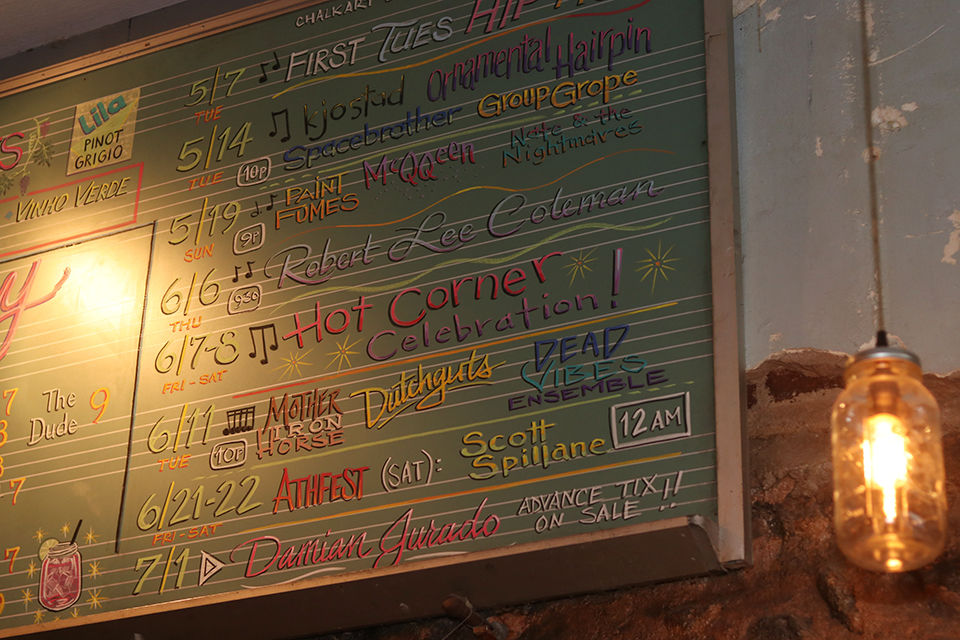 CHALKART
5/7 TUE ♫ FIRST TUES HIP
5/14 TUE 10P ♫ kjostud Ornamental Hairpin
Spacebrother GroupGrope
5/19 SUN 9P ♫ PAINT FUMES McQQeen Nate & the Nightmaves
6/6 THU 930 ♫ Robert Lee Coleman
6/7-8 FRI-SAT ♫ Hot Corner
Celebration!
6/11 TUE 10P MOTHER Dutchguts DEAD
HORSE VIBES
ENSEMBLE
6/21-22 FRI-SAT ATHFEST (SAT): Scott Spillane 12AM
7/1 Damian Jurado ADVANCE TIX!!
ON SALE
S
Lila
PINOT
GRIGIO
VINHO VERDE
y
7
The
Dude
9
8
7
7